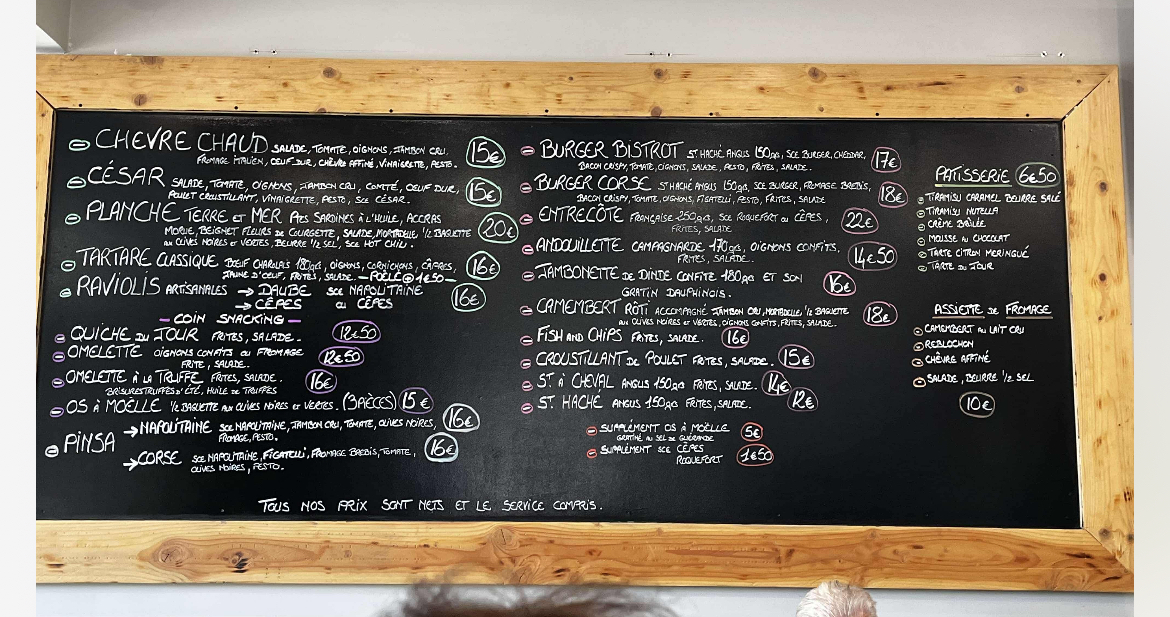 CHÈVRE CHAUD SALADE, TOMATE, OIGNONS, JAMBON CRU, 15€
FROMAGE ITALIEN, OEUF DUR, CHÈVRE AFFINÉ, VINAIGRETTE, PESTO.
CÉSAR SALADE, TOMATE, OIGNONS, JAMBON CRU, COMTÉ, OEUF DUR, 15€
POULET CROUSTILLANT, VINAIGRETTE, PESTO, SCE CÉSAR.
PLANCHE TERRE ET MER PTES SARDINES À L'HUILE, ACCRAS 20€
MORUE, BEIGNET FLEURS DE COURGETTE, SALADE, MORTADELLE, 1/2 BAGUETTE
AUX OLIVES NOIRES ET VERTES, BEURRE 1/2 SEL, SCE HOT CHILI.
TARTARE CLASSIQUE BOEUF CHAROLAIS 180grs, OIGNONS, CORNICHONS, CÂPRES, 16€
JAUNE D'OEUF, FRITES, SALADE. - POÊLÉ 1€50 -
RAVIOLIS ARTISANALES → DAUBE SCE NAPOLITAINE 16€
→ CÈPES OU CÈPES
- COIN SNACKING -
QUICHE DU JOUR FRITES, SALADE. 12€50
OMELETTE OIGNONS CONFITS OU FROMAGE 12€50
FRITE, SALADE.
OMELETTE À LA TRUFFE FRITES, SALADE. 16€
BRISURES TRUFFES D'ÉTÉ, HUILE DE TRUFFES
OS À MOELLE 1/2 BAGUETTE AUX OLIVES NOIRES ET VERTES. (3 PIÈCES) 15€
PINSA → NAPOLITAINE SCE NAPOLITAINE, JAMBON CRU, TOMATE, OLIVES NOIRES, 16€
FROMAGE, PESTO.
→ CORSE SCE NAPOLITAINE, FIGATELLI, FROMAGE BREBIS, TOMATE, 16€
OLIVES NOIRES, PESTO.
BURGER BISTROT ST HACHÉ ANGUS 150grs, SCE BURGER, CHEDDAR, 17€
BACON CRISPY, TOMATE, OIGNONS, SALADE, PESTO, FRITES, SALADE.
BURGER CORSE ST HACHÉ ANGUS 150grs, SCE BURGER, FROMAGE BREBIS, 18€
BACON CRISPY, TOMATE, OIGNONS, FIGATELLI, PESTO, FRITES, SALADE
ENTRECÔTE FRANÇAISE 250grs, SCE ROQUEFORT OU CÈPES, 22€
FRITES, SALADE
ANDOUILLETTE CAMPAGNARDE 170grs, OIGNONS CONFITS, 14€50
FRITES, SALADE.
JAMBONETTE DE DINDE CONFITE 180grs ET SON 16€
GRATIN DAUPHINOIS.
CAMEMBERT RÔTI ACCOMPAGNÉ JAMBON CRU, MORTADELLE, 1/2 BAGUETTE 18€
AUX OLIVES NOIRES ET VERTES, OIGNONS CONFITS, FRITES, SALADE.
FISH AND CHIPS FRITES, SALADE. 16€
CROUSTILLANT DE POULET FRITES, SALADE. 15€
ST. À CHEVAL ANGUS 150grs FRITES, SALADE. 14€
ST. HACHÉ ANGUS 150grs FRITES, SALADE. 12€
SUPPLÉMENT OS À MOËLLE 5€
GRATINÉ AU SEL DE GUÉRANDE
SUPPLÉMENT SCE CÈPES 1€50
ROQUEFORT
PATISSERIE 6€50
TIRAMISU CARAMEL BEURRE SALÉ
TIRAMISU NUTELLA
CRÈME BRÛLÉE
MOUSSE AU CHOCOLAT
TARTE CITRON MERINGUÉ
TARTE DU JOUR
ASSIETTE DE FROMAGE
CAMEMBERT AU LAIT CRU
REBLOCHON
CHÈVRE AFFINÉ
SALADE, BEURRE 1/2 SEL
10€
TOUS NOS PRIX SONT NETS ET LE SERVICE COMPRIS.